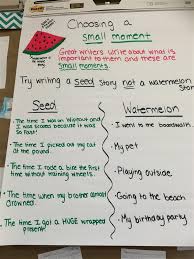 Choosing a
small moment
Great writers write about what is
important to them and these are
Small moments.
Try writing a seed story not a watermelon
Story
Seed
Watermelon
The time I was on
and I was scared because it was
so fast!
I went to the boardwalk.
The time I picked out my cat
at the pound.
My pet
The time I rode a bike the first
time without training wheels.
Playing outside
The time when my brother almost
drowned.
Going to the beach
The time I got a HUGE wrapped
present!
My birthday party